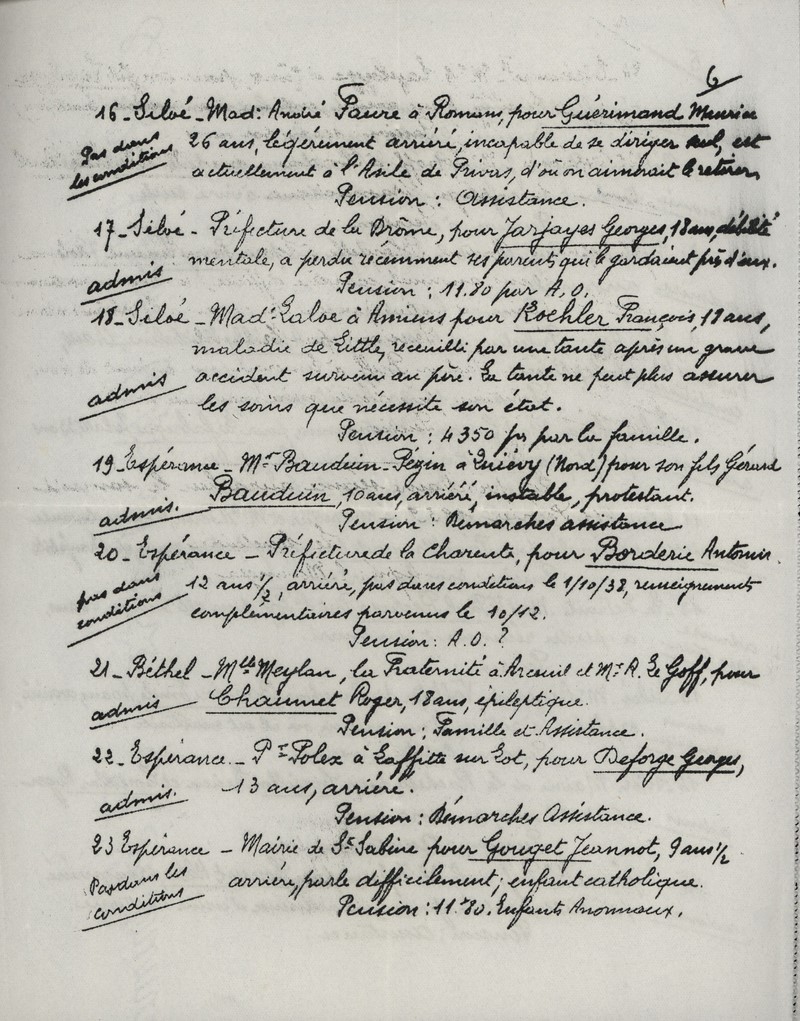 6
16 - Siloé - Mad: André Faure à Romans, pour Guérimand Maurice
Pas dans les conditions
26 ans, légèrement arriéré, incapable de se diriger seul, est
actuellement à l'Asile de Privas, d'où on aimerait le retirer.
Pension : Assistance.
17 - Siloé - Préfecture de la Drôme, pour Jarjayes Georges, 18 ans, débilité
admis
mentale, a perdu récemment ses parents qui le gardaient près d'eux.
Pension : 11.80 par A.O.
18 - Siloé - Made Laloe à Amiens pour Kochler François, 11 ans,
maladie de Little, recueilli par une tante après un grave
admis
accident survenu au père. La tante ne peut plus assurer
les soins que nécessite son état.
Pension : 4350 frs par la famille.
19 - Espérance - Mr Bauduin-Pégin à Quiévy (Nord) pour son fils Gérard
admis.
Bauduin, 10 ans, arriéré, instable, protestant.
Pension : Démarches assistance
20 - Espérance - Préfecture de la Charente, pour Borderie Antonin.
pas dans conditions
12 ans 1/2, arriéré, pas dans conditions le 1/10/38, renseignements
complémentaires parvenus le 10/12.
Pension : A.O. ?
21 - Béthel - Melle Meylan, la Fraternité à Arcueil et Mr A. Le Goff, pour
admis
Chaumet Roger, 18 ans, épileptique.
Pension : Famille et Assistance.
22 - Espérance - Pr Polex à Laffitte sur Lot, pour Deforge Georges,
admis.
13 ans, arriéré.
Pension : Démarches Assistance.
23 Espérance - Mairie de Ste Sabine pour Gouget Jeannot, 9 ans 1/2
Pas dans les conditions
arriéré, parle difficilement ; enfant catholique.
Pension : 11.80. Enfants Anormaux.